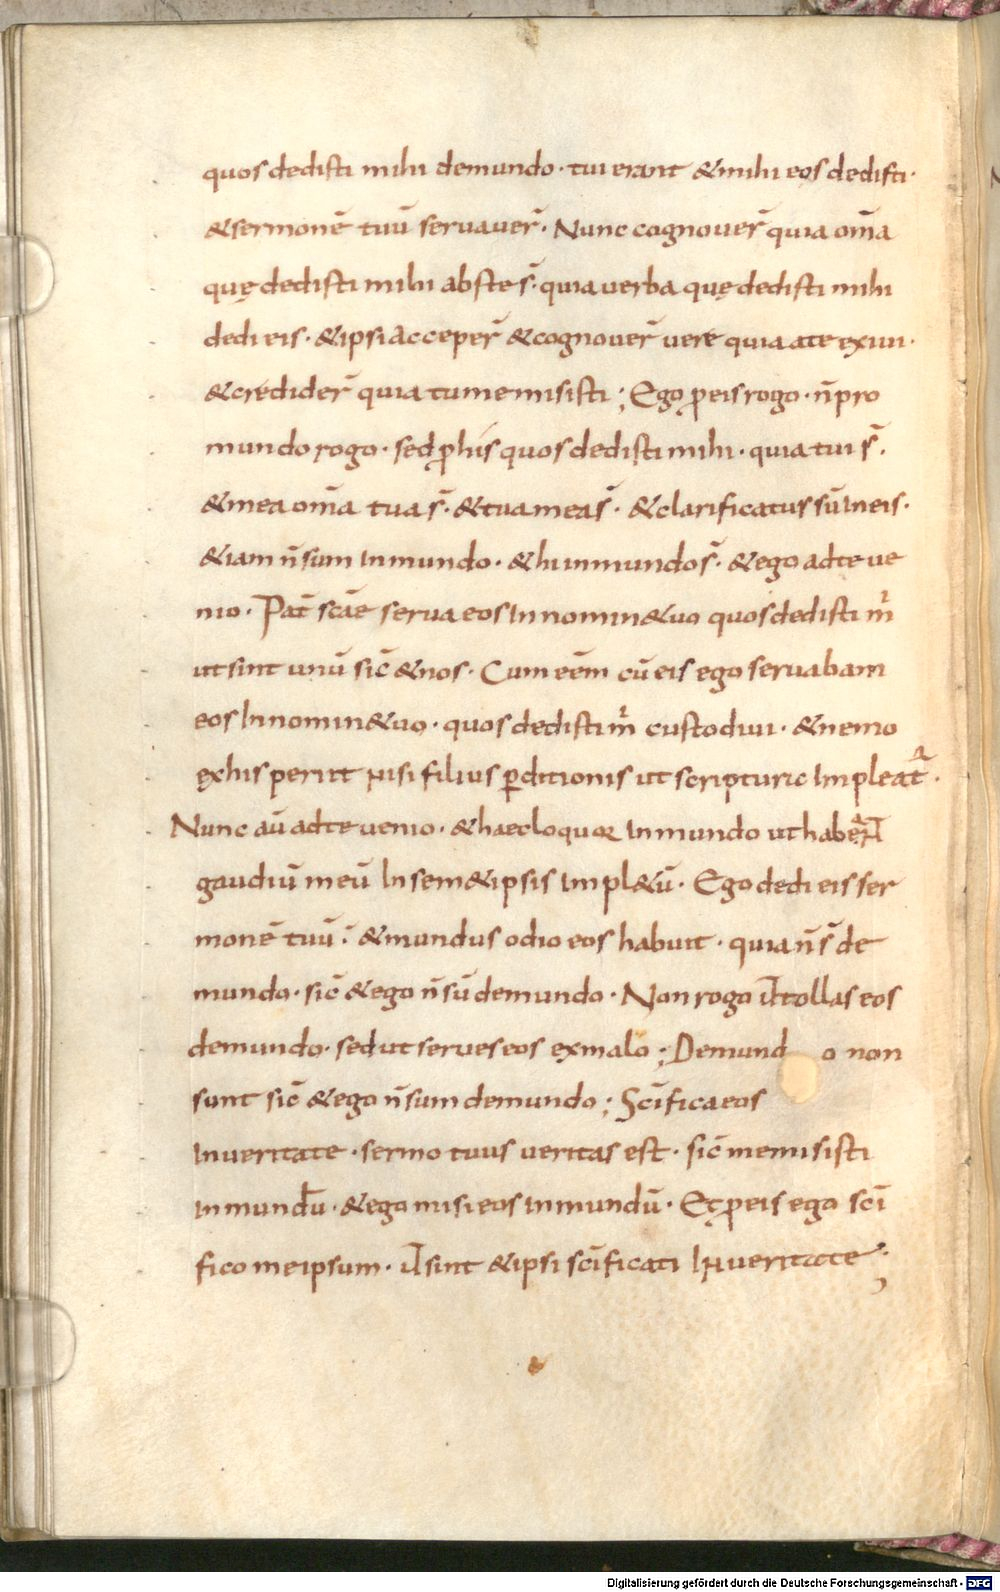 quos dedisti mihi demundo · tui erant &mihi eos dedisti·
&sermonē tuū servaver̄· Nunc cognover̄ quia om̄a
quę dedisti mihi abste s̄· quia verba quę dedisti mihi
dedi eis · &ipsi acceper̄ &cognover̄ vere quia ate exivi ·
&credider̄ quia tu me misisti ; Ego ꝓ eis rogo · n̄ pro
mundo rogo · sed ꝓ his quos dedisti mihi · quia tui s̄ ·
&mea om̄a tua s̄ · &tua mea s̄ · &clarificatus sū in eis ·
&iam n̄ sum In mundo · &hi in mundo s̄ · &ego ad te ve
nio · Pat̄ sc̄ae serva eos In nomin& uo quos dedisti m̄
ut sint unū sic̄ &nos · Cum eēm cū eis ego servabam
eos In nomin& uo · quos dedisti m̄ custodivi · &nemo
ęx his periit nisi filius ꝑditionis ut scripturae Impleat̄ ·
Nunc aū ad te venio · &haec loquor In mundo ut habeant
gaudiū meū In sem&ipsis Impl&ū · Ego dedi eis ser
monē tuū · &mundus odio eos habuit · quia n̄ s̄ de
mundo · sic̄ &ego n̄ sū demundo · Non rogo ut tollas eos
demundo · sed ut serves eos ex malo ; Demund o non
sunt sic̄ &ego n̄ sum demundo ; Sc̄ifica eos
In veritate · sermo tuus veritas est · sic̄ me misisti
In mundū · &ego misi eos In mundū · Et ꝓ eis ego sc̄i
fico me ipsum · ut sint &ipsi sc̄ificati In veritate ;
Digitalisierung gefördert durch die Deutsche Forschungsgemeinschaft - DFG